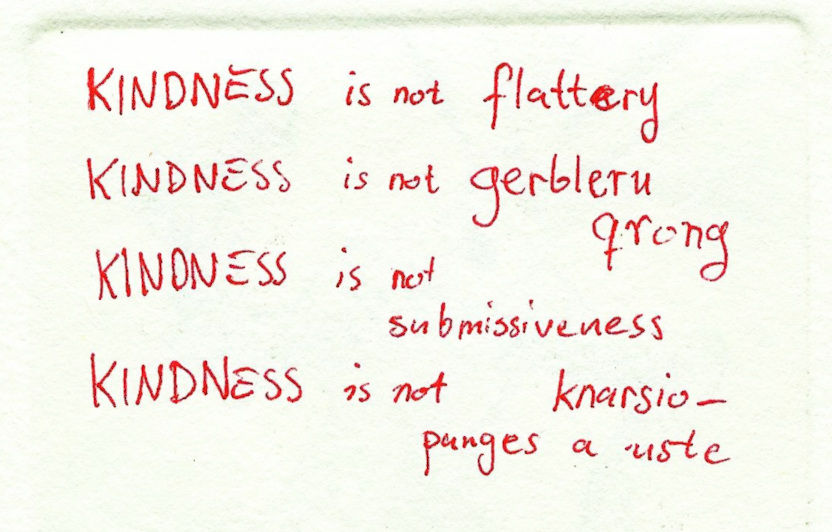 KINDNESS is not flattery
KINDNESS is not gerbleru
qrong
KINDNESS is not
submissiveness
KINDNESS is not knarsio-
punges a uste